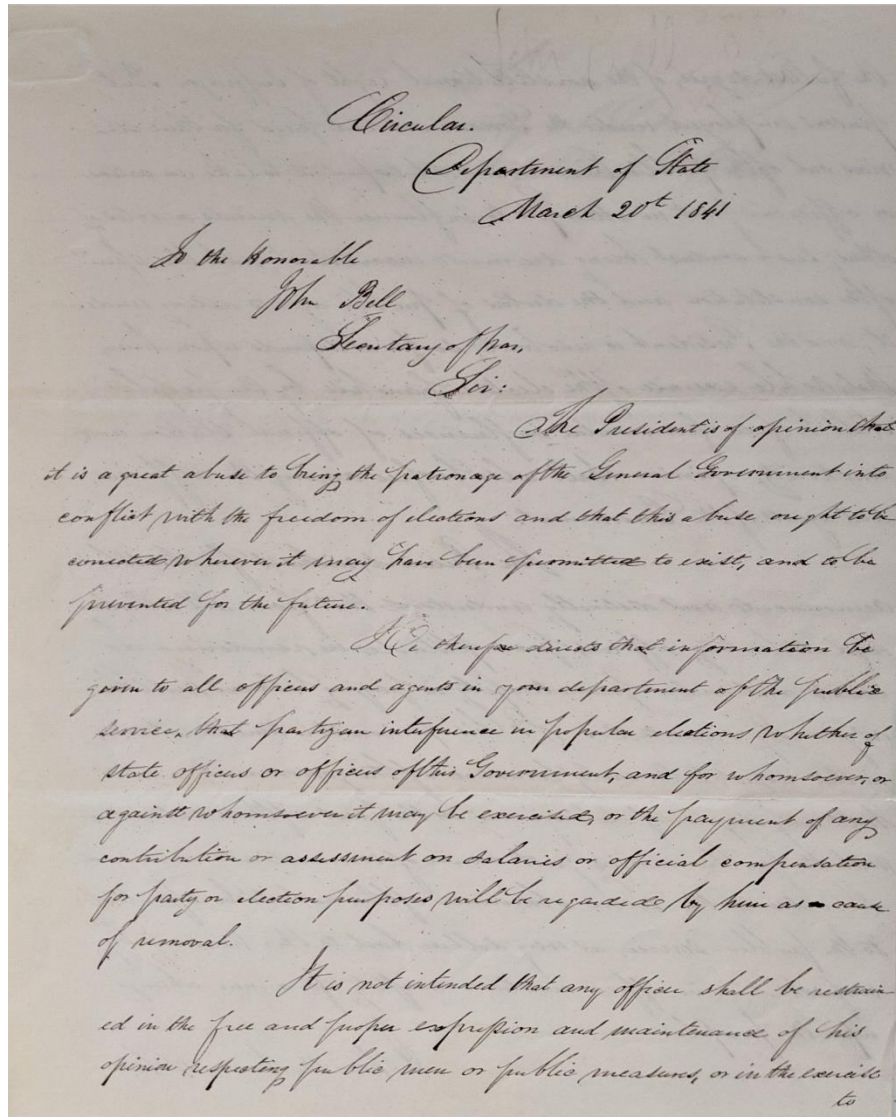 Circular.
Department of State
March 20th 1841
To the Honorable
John Bell
Secretary of War,
Sir:
The President is of opinion that
it is a great abuse to bring the patronage of the General Government into
conflict with the freedom of elections and that this abuse ought to be
corrected wherever it may have been permitted to exist, and to be
prevented for the future.
He therefore directs that information be
given to all officers and agents in your department of the public
service, that partizan interference in popular elections whether of
state officers or officers of this Government, and for whomsoever, or
against whomsoever it may be exercised, or the payment of any
contribution or assessment on salaries or official compensation
for party or election purposes will be regarded by him as a cause
of removal.
It is not intended that any officer shall be restrain
ed in the free and proper expression and maintenance of his
opinion respecting public men or public measures, or in the exercise
to